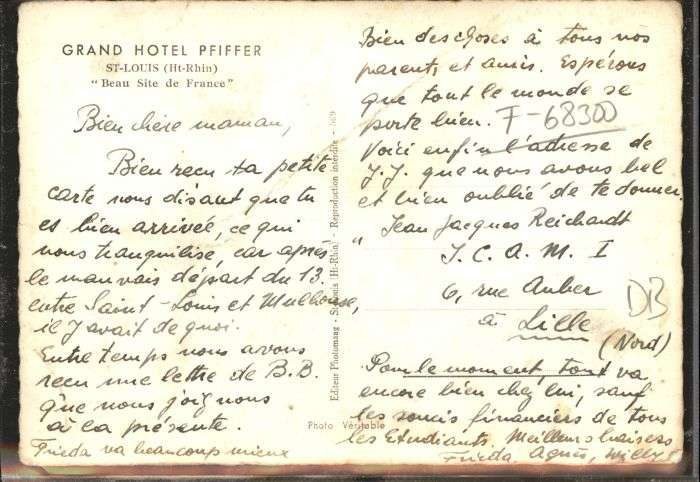 GRAND HOTEL PFIFFER
ST-LOUIS (Ht-Rhin)
"Beau Site de France"
Bien chère maman,
Bien reçu ta petite
carte nous disant que tu
es bien arrivée, ce qui
nous tranquilise, car après
le mauvais départ du 13.
entre Saint-Louis et Mulhouse,
il y avait de quoi.
Entre temps nous avons
reçu une lettre de B.B.
que nous joig nous
à la présente.
Frieda va beaucoup mieux
Editeur Photomaag - St-Louis (Ht-Rhin) - Reproduction interdite -
Photo Véritable
Bien des choses à tous nos
parents et amis. Espérons
que tout le monde se
porte bien. F-68300
Voici enfin l'adresse de
J.J. que nous avons bel
et bien oublié de te donner.
" Jean Jacques Reichardt
I.C.A.M. I
6, rue Auber
à Lille
(Nord)
DB
Pour le moment, tout va
encore bien chez lui, sauf
les soucis financiers de tous
les Etudiants. Meilleurs baisers
Frieda. Agnès, Willy